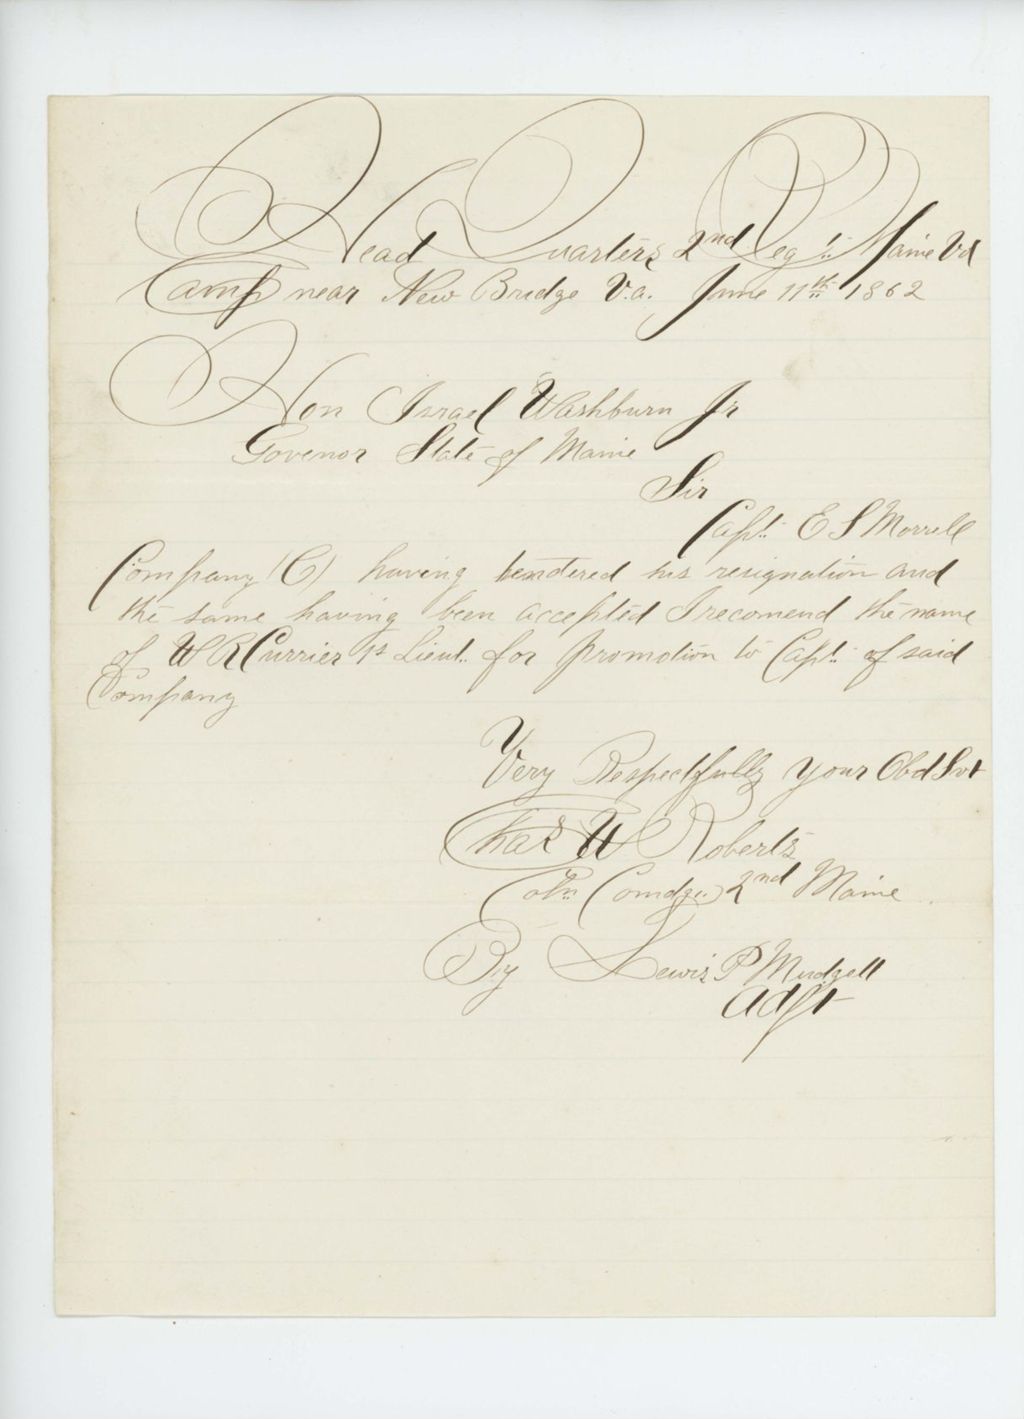 Head Quarters 2nd Regt. Maine Vol
Camp near New Bridge Va. June 11th 1862
Hon Israel Washburn Jr
Govenor State of Maine
Sir
Capt. E S Morrell
Company (C) having tendered his resignation and
the same having been accepted I recomend the name
of W R Currier 1st Lieut. for promotion to Capt. of said
Company
Very Respectfully your Obd Svt
Chas W Roberts
Coln Comdg. 2nd Maine
By Lewis P Mudgett
Adjt